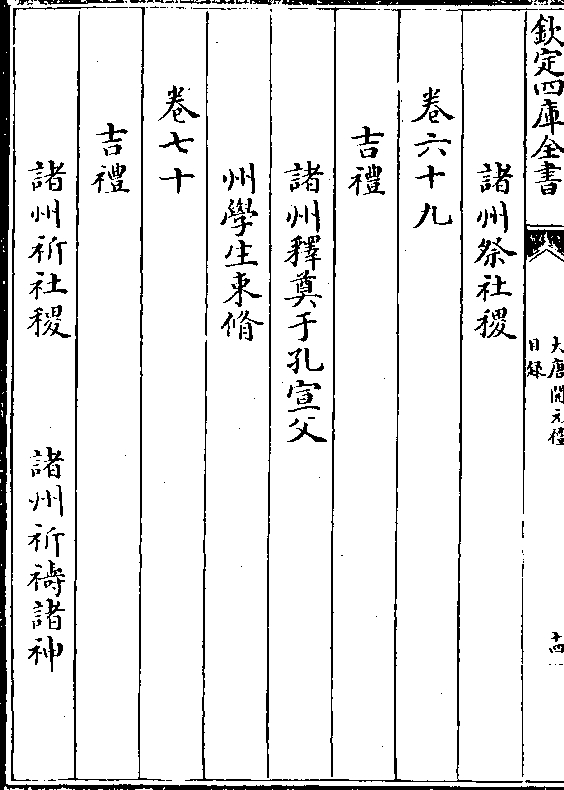 欽定四庫全書
大唐開元禮
目錄
十四
諸州祭社稷
卷六十九
吉禮
諸州釋奠于孔宣父
州學生束脩
卷七十
吉禮
諸州祈社稷 諸州祈禱諸神